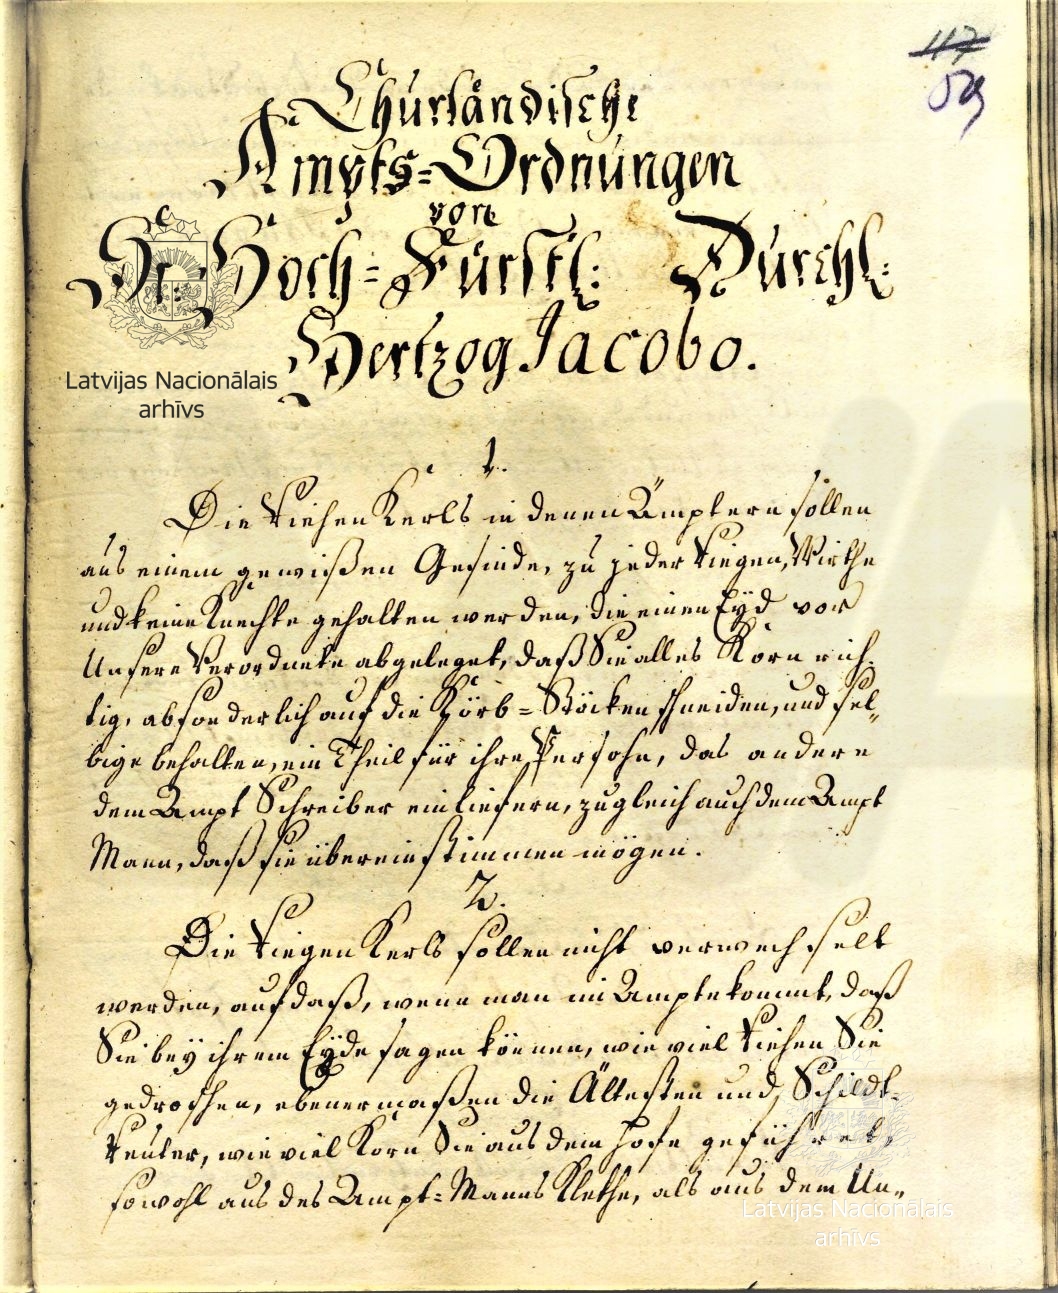 117
59
Churländische
Ampts=Ordnungen
von
Sr: Hoch=Fürstl: Durchl:
Hertzog Jacobo.
Latvijas Nacionālais
arhīvs
1.
Die Riehen Kerls in denen Ämptern sollen
aus einem gewißen Gesinde, zu jeder Riegen, Wirthe
und keine Knechte gehalten werden, die einen Eÿd vor
Unsere Verordnete abgeleget, daß Sie alles Korn rich
tig, absonderlich auf die Körb=Stöcken schneiden, und sel„
bige behalten, ein Theil für ihre Persohn, das andere
dem Ampt Schreiber einliefern, zugleich auch dem Ampt
Mann, daß sie übereinstimmen mögen.
2.
Die Riegen Kerls sollen nicht verwechselt
werden, auf daß, wenn man im Ampte kommt, daß
Sie beÿ ihrem Eÿde sagen können, wie viel Riehen Sie
gedroschen, ebenermaßen die Ältesten und Schildt-
Reuter, wie viel Korn Sie aus dem Hofe geführet,
sowohl aus des Ampt=Manns Klethe, als aus dem Un„
Latvijas Nacionālais
arhīvs